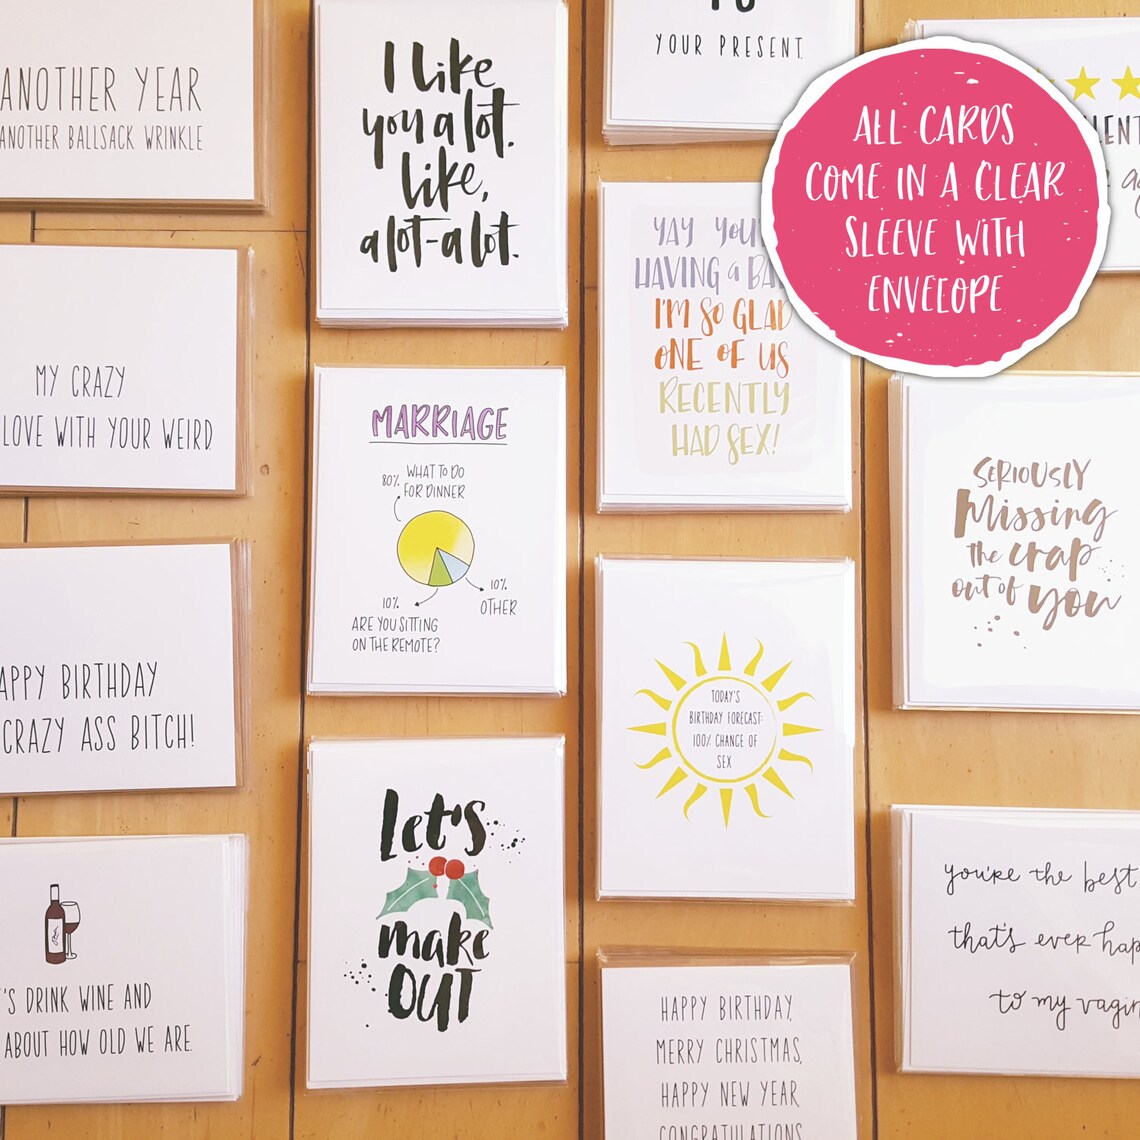 ANOTHER YEAR
ANOTHER BALLSACK WRINKLE
MY CRAZY
LOVE WITH YOUR WEIRD.
BIRTHDAY
CRAZY ASS BITCH!
DRINK WINE AND
ABOUT HOW OLD WE ARE.
I like
you a lot.
like,
a lot-a lot.
MARRIAGE
80% WHAT TO DO
FOR DINNER
10%
OTHER
10%
ARE YOU SITTING
ON THE REMOTE?
Let's
make
OUT
YOUR PRESENT.
YAY
HAVING a
I'M SO GLAD
ONE OF US
RECENTLY
HAD SEX!
TODAY'S
BIRTHDAY FORECAST:
100% CHANCE OF
SEX
HAPPY BIRTHDAY,
MERRY CHRISTMAS,
HAPPY NEW YEAR
CONGRATULATIONS
ALL CARDS
COME IN A CLEAR
SLEEVE WITH
ENVELOPE
SERIOUSLY
Missing
the crap
out of
you
you're the best
that's ever
to my